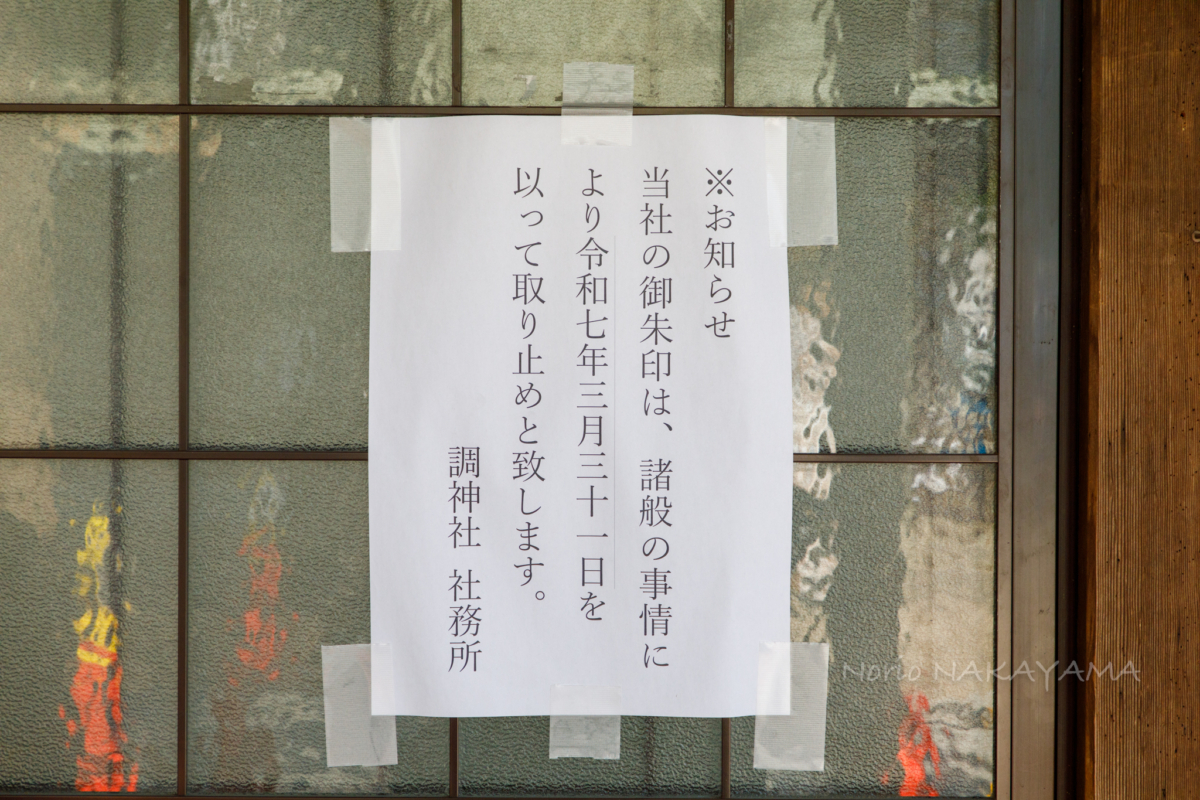 ※お知らせ
当社の御朱印は、諸般の事情に
より令和七年三月三十一日を
以って取り止めと致します。
調神社 社務所
Norio NAKAYAMA